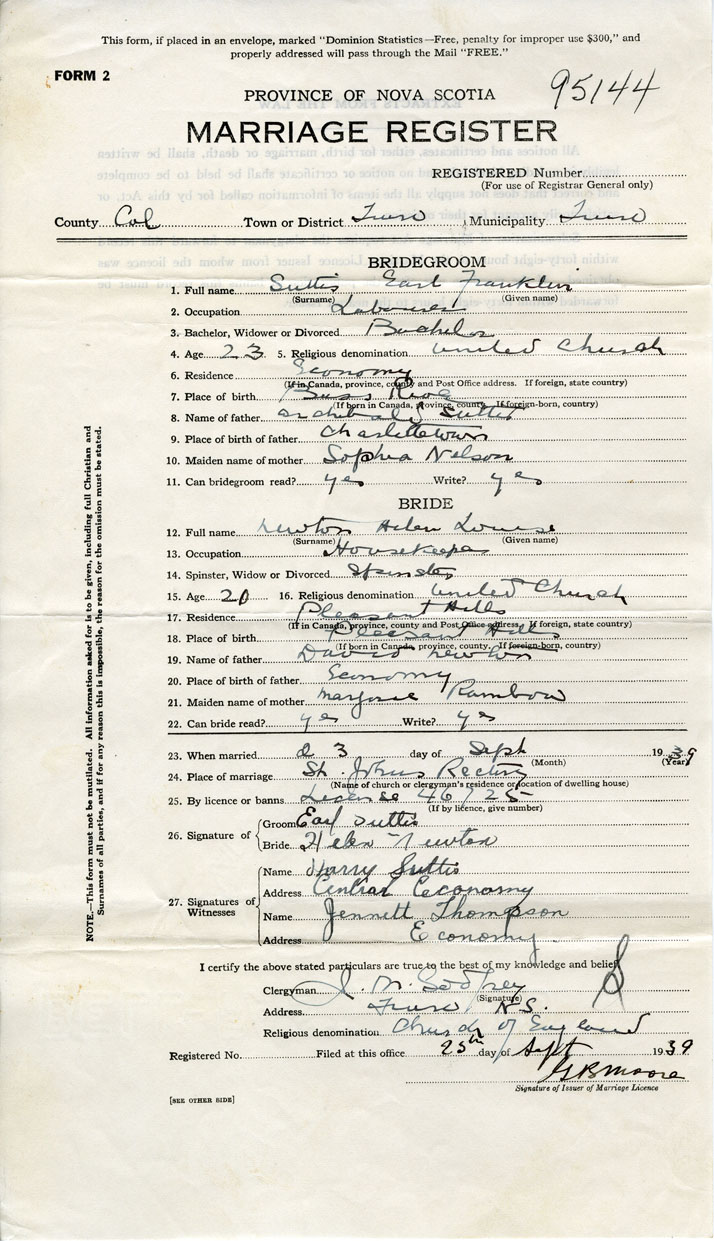 This form, if placed in an envelope, marked "Dominion Statistics—Free, penalty for improper use $300," and
properly addressed will pass through the Mail "FREE."
FORM 2
PROVINCE OF NOVA SCOTIA
95144
MARRIAGE REGISTER
REGISTERED Number
(For use of Registrar General only)
County Col Town or District Truro Municipality Truro
BRIDEGROOM
1. Full name Suttis Earl Franklin
(Surname) (Given name)
2. Occupation Labourer
3. Bachelor, Widower or Divorced Bachelor
4. Age 23 5. Religious denomination United Church
6. Residence Economy
(If in Canada, province, county and Post Office address. If foreign, state country)
7. Place of birth Bass River
(If born in Canada, province, county. If foreign-born, country)
8. Name of father Archibald Suttis
9. Place of birth of father Charlottetown
10. Maiden name of mother Sophia Nelson
11. Can bridegroom read? yes Write? yes
BRIDE
12. Full name Newton Helen Louise
(Surname) (Given name)
13. Occupation Housekeeper
14. Spinster, Widow or Divorced Spinster
15. Age 20 16. Religious denomination United Church
17. Residence Pleasant Hills
(If in Canada, province, county and Post Office address. If foreign, state country)
18. Place of birth Pleasant Hills
(If born in Canada, province, county. If foreign-born, country)
19. Name of father David Newton
20. Place of birth of father Economy
21. Maiden name of mother Marjorie Rambow
22. Can bride read? yes Write? yes
23. When married 23 day of Sept 1939
(Month) (Year)
24. Place of marriage St. Johns Rectory
(Name of church or clergyman's residence or location of dwelling house)
25. By licence or banns License 46725
(If by licence, give number)
26. Signature of
Groom Earl Suttis
Bride Helen Newton
27. Signatures of Witnesses
Name Harry Suttis
Address Central Economy
Name Jennett Thompson
Address Economy
I certify the above stated particulars are true to the best of my knowledge and belief
Clergyman J. M. Godfrey
(Signature)
Address Truro N.S.
Religious denomination Church of England
Registered No. Filed at this office 25th day of Sept 1939
G B Moore
Signature of Issuer of Marriage Licence
[SEE OTHER SIDE]
NOTE.—This form must not be mutilated. All information asked for is to be given, including full Christian and
Surnames of all parties, and if for any reason this is impossible, the reason for the omission must be stated.